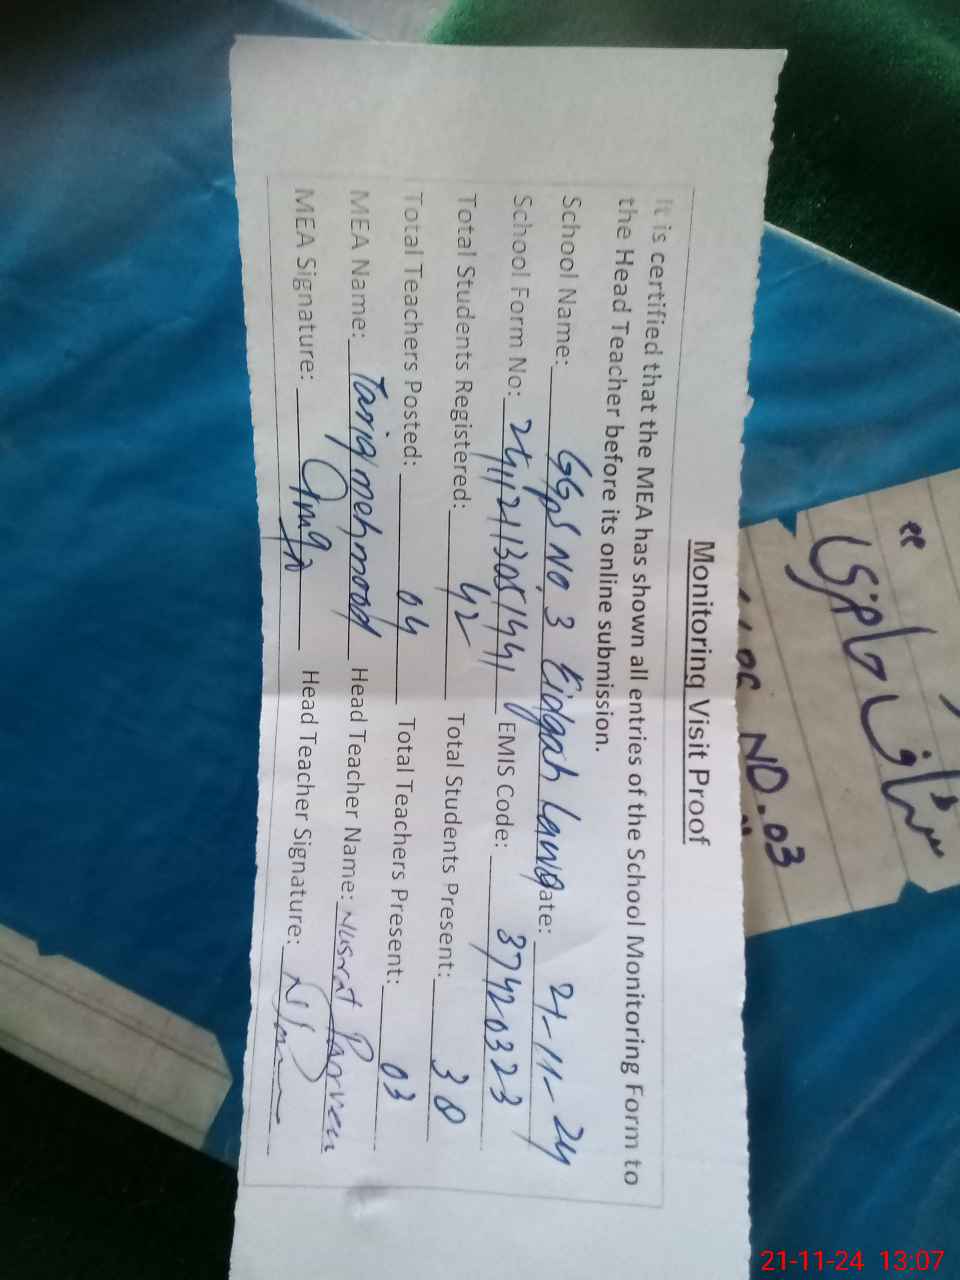 Monitoring Visit Proof
It is certified that the MEA has shown all entries of the School Monitoring Form to
the Head Teacher before its online submission.
School Name: GGPS NO. 3 Eidgah Date: 21-11-24
School Form No: EMIS Code: 37420323
Total Students Registered: 42 Total Students Present: 30
Total Teachers Posted: 04 Total Teachers Present: 03
MEA Name: Tariq mehmood Head Teacher Name: Nusrat Parveen
MEA Signature: Head Teacher Signature:
NO. 03
21-11-24 13:07